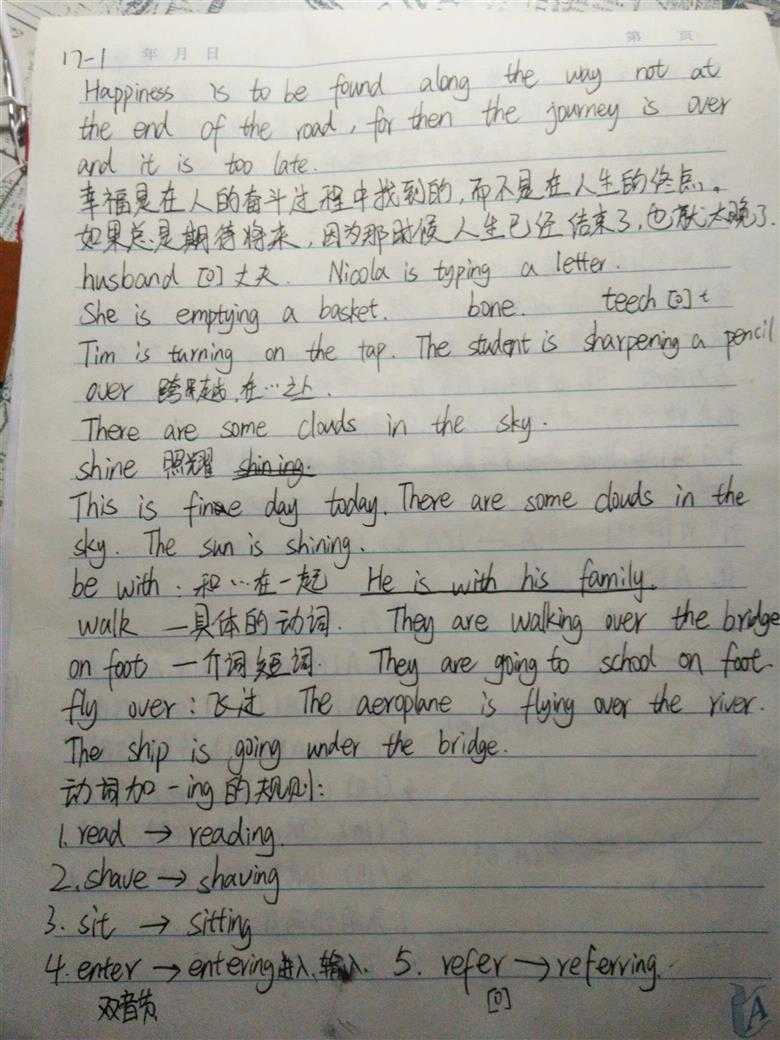 17-1 年 月 日 第 页
Happiness is to be found along the way not at
the end of the road, for then the journey is over
and it is too late.
幸福是在人的奋斗过程中找到的,而不是在人生的终点。
如果总是期待将来,因为那时候人生已经结束了,也就太晚了.
husband [ə] 丈夫. Nicola is typing a letter.
She is emptying a basket. bone. teech
Tim is turning on the tap. The student is sharpening a pencil
over 跨越,在…之上.
There are some clouds in the sky.
shine 照耀 shining.
This is fine day today. There are some clouds in the
sky. The sun is shining.
be with: 和…在一起 He is with his family.
walk 一具体的动词. They are walking over the bridge
on foot 一介词短词. They are going to school on foot.
fly over: 飞过 The aeroplane is flying over the river.
The ship is going under the bridge.
动词加-ing的规则:
1. read → reading.
2. shave → shaving
3. sit → sitting
4. enter → entering 进入、输入. 5. refer → referring.
双音节 [ə]